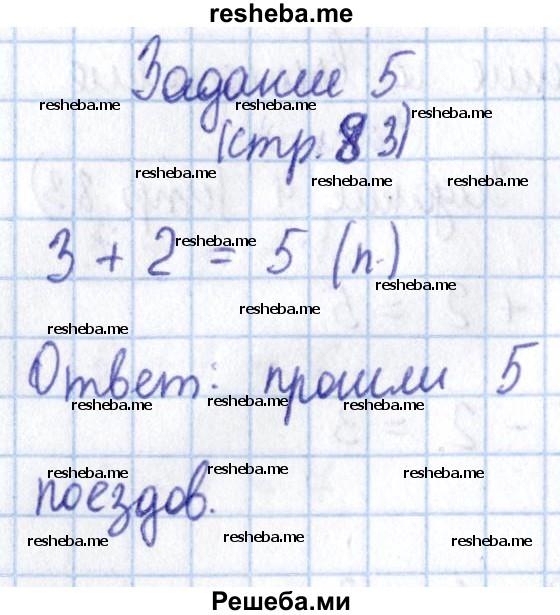 resheba.me
Задание 5
resheba.me resheba.me resheba.me
(стр. 83)
resheba.me resheba.me resheba.me
3 + 2 = 5 (п.)
resheba.me resheba.me
resheba.me resheba.me
Ответ: прошли 5
resheba.me resheba.me resheba.me
resheba.me resheba.me resheba.me
поездов.
resheba.me resheba.me resheba.me
Решеба.ми